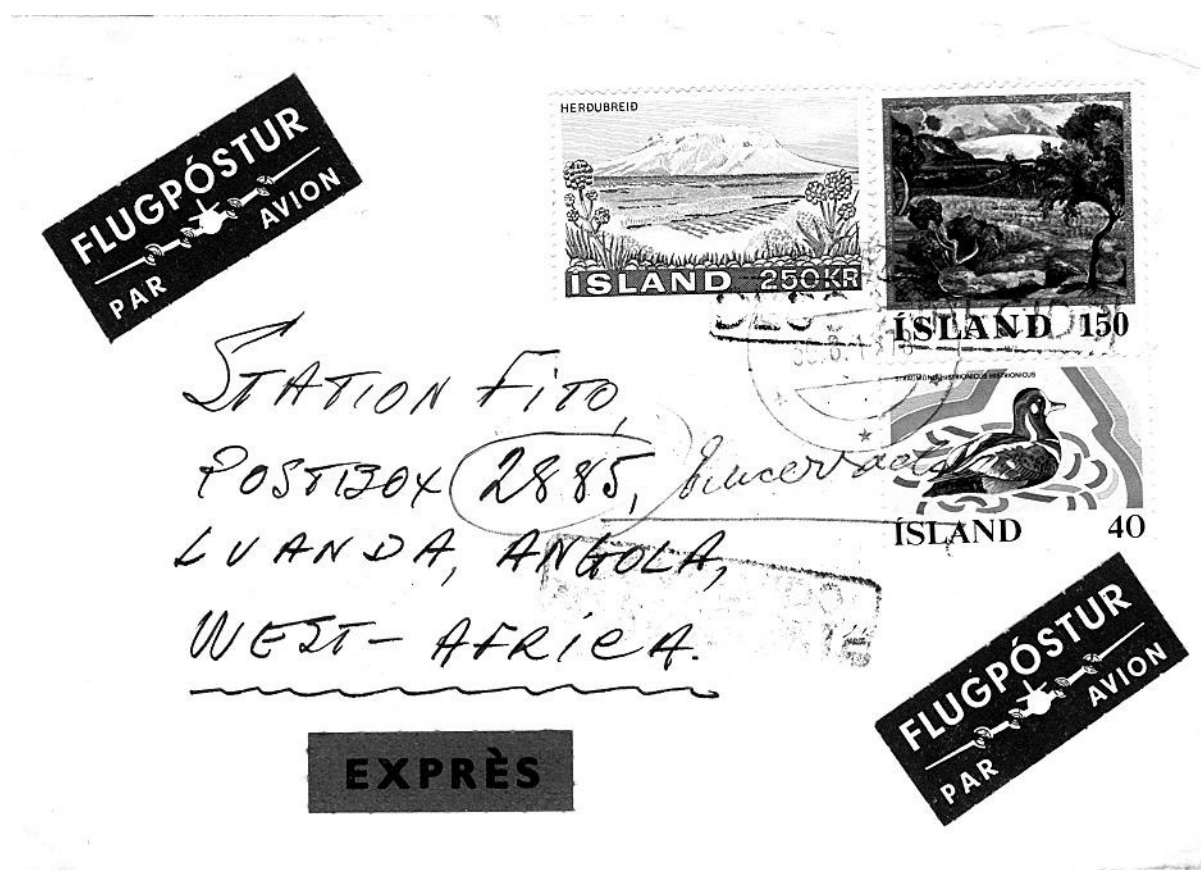 FLUGPÓSTUR
PAR AVION
HERÐUBREIÐ
ÍSLAND 250KR
ÍSLAND 150
HISTRIONICUS HISTRIONICUS
ÍSLAND 40
STATION FITO,
POSTBOX 2885,
LUANDA, ANGOLA,
WEST-AFRÍCA.
EXPRÈS
FLUGPÓSTUR
PAR AVION